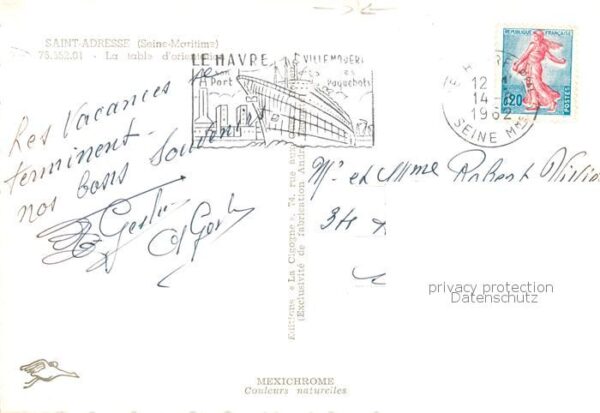 SAINT-ADRESSE (Seine-Maritime)
76.552.01 - La table d'orientation
LE HAVRE VILLE MODERNE
son Port ses Paquebots
LE HAVRE
12 H
14 -
1962
SEINE MME
REPUBLIQUE FRANÇAISE
0,20
POSTES
Les Vacances se
terminent -
nos bons souvenirs
Mr et Mme Robert
34
Editions « La Cigogne », 74, rue
(Exclusivité de fabrication André
privacy protection
Datenschutz
MEXICHROME
Couleurs naturelles